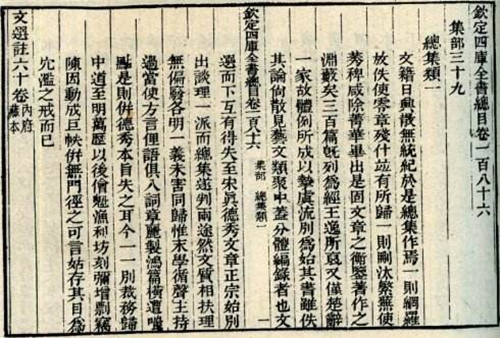 欽定四庫全書總目卷一百八十六
集部三十九
總集類一
文籍日興散無統紀於是總集作焉一則網羅
放佚使零章殘什並有所歸一則刪汰繁蕪使
莠稗咸除菁華畢出是固文章之衡鑒著作之
淵藪矣三百篇旣列爲經王逸所裒又僅楚辭
一家故體例所成以摯虞流別爲始其書雖佚
其論尙散見藝文類聚中蓋分體編錄者也文
欽定四庫全書總目卷一百八十六 集部 總集類一 一
選而下互有得失至宋眞德秀文章正宗始別
出談理一派而總集遂判兩途然文質相扶理
無偏廢各明一義未害同歸惟末學循聲主持
過當使方言俚語俱入詞章麗製鴻篇橫遭嗤
點是則併德秀本旨失之耳今一一別裁務歸
中道至明萬歷以後儈魁漁利坊刻彌增剽竊
陳因動成巨帙併無門徑之可言姑存其目爲
冗濫之戒而已
文選註六十卷內府藏本